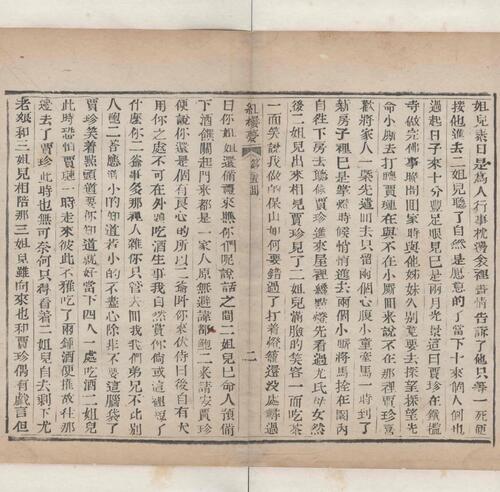 姐兒素日是為人行事枕邊衾裡盡情告訴了他只等一死便
接他進去二姐兒聽了自然是愿意的了當下十來個人倒也
過起日子來十分豐足眼見已是兩月光景這日賈珍在鐵檻
寺做完佛事晚間回家時與他姊妹久別竟要去探望探望先
命小厮去打聽賈璉在與不在小厮回來說不在那裡賈珍喜
歡將家人一槩先遣回去只留兩個心腹小童牽馬一時到了
新房子裡已是掌燈時候悄悄進去兩個小厮將馬拴在圈內
自往下房去聽候賈珍進來屋裡纔點燈先看過尤氏母女然
後二姐兒出見賈珍見了二姐兒滿臉的笑容一面吃茶
一面笑說我做的保山如何要錯過了打着燈籠還沒處尋過
紅樓夢 第回 二
日你姐姐還備禮來瞧你們呢說話之間二姐兒已命人預備
下酒饌關起門來都是一家人原無避諱那鮑二來請安賈珍
便說你還是個有良心的所以二爺叫你來伏侍日後自有大
用你之處不可在外頭吃酒生事我自然賞你倘或這裡短了
什麼你二爺事多那裡人雜你只管去回我我們弟兄不比別
人鮑二答應道小的知道若小的不盡心除非不要這腦袋了
賈珍笑着點頭道要你知道就好當下四人一處吃酒二姐兒
此時恐怕賈璉一時走來彼此不雅吃了兩鍾酒便推故往那
邊去了賈珍此時也無可奈何只得看着二姐兒自去剩下尤
老娘和三姐兒相陪那三姐兒雖向來也和賈珍偶有戲言但